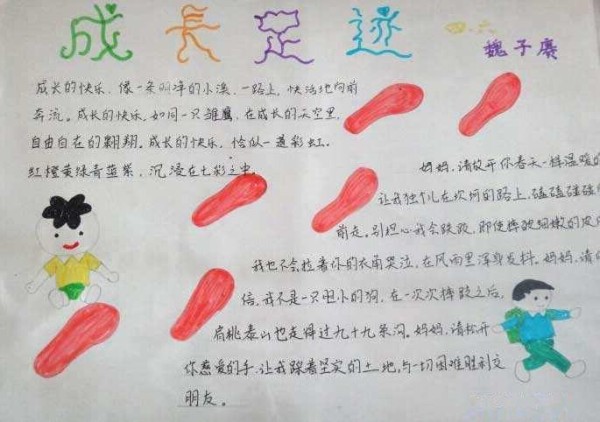 成长足迹
四·六
魏子赓
成长的快乐，像一条明净的小溪，一路上，快活地向前
奔流。成长的快乐，如同一只雏鹰，在成长的天空里，
自由自在的翱翔。成长的快乐，恰似一道彩虹，
红橙黄绿青蓝紫，沉浸在七彩之中。
妈妈，请放开你春天一样温暖的
让我独个儿在坎坷的路上，磕磕碰碰
前走。别担心我会跌跤，即使摔破细嫩的皮
我也不会拉着你的衣角哭泣，在风雨里浑身发抖。妈妈，请
信。我不是一只胆小的狗，在一次次摔跤之后，
肩挑泰山也走得过九十九条沟。妈妈，请松开
你慈爱的手，让我踩着坚实的土地，与一切困难胜利交
朋友。